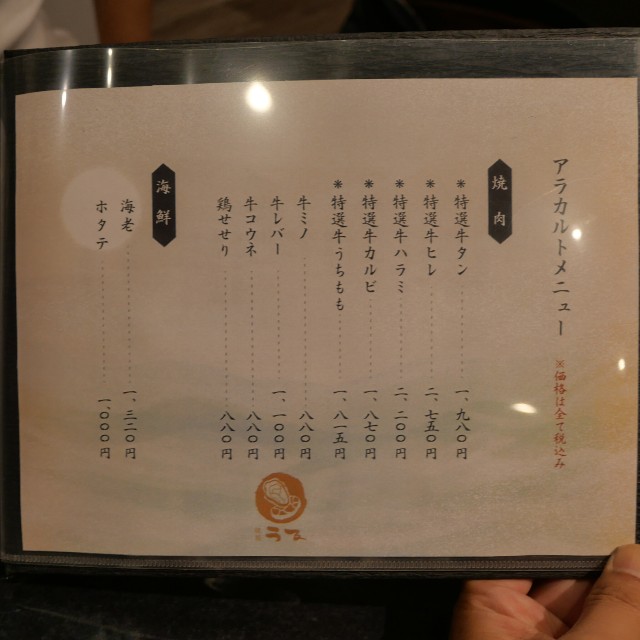 アラカルトメニュー
※価格は全て税込み
焼肉
※特選牛タン 一、九八〇円
※特選牛ヒレ 二、七五〇円
※特選牛ハラミ 二、二〇〇円
※特選牛カルビ 一、八七〇円
※特選牛うちもも 一、八一五円
牛ミノ 八八〇円
牛レバー 一、一〇〇円
牛コウネ 八八〇円
鶏せせり 八八〇円
海鮮
海老 一、三二〇円
ホタテ 一、〇〇〇円